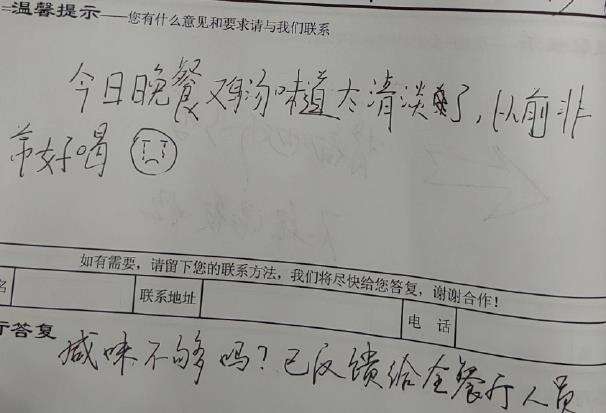 温馨提示——您有什么意见和要求请与我们联系
今日晚餐鸡汤味道太清淡了，以前非
常好喝
如有需要，请留下您的联系方法，我们将尽快给您答复，谢谢合作！
名 联系地址 电 话
厅答复 咸味不够吗？已反馈给全餐厅人员